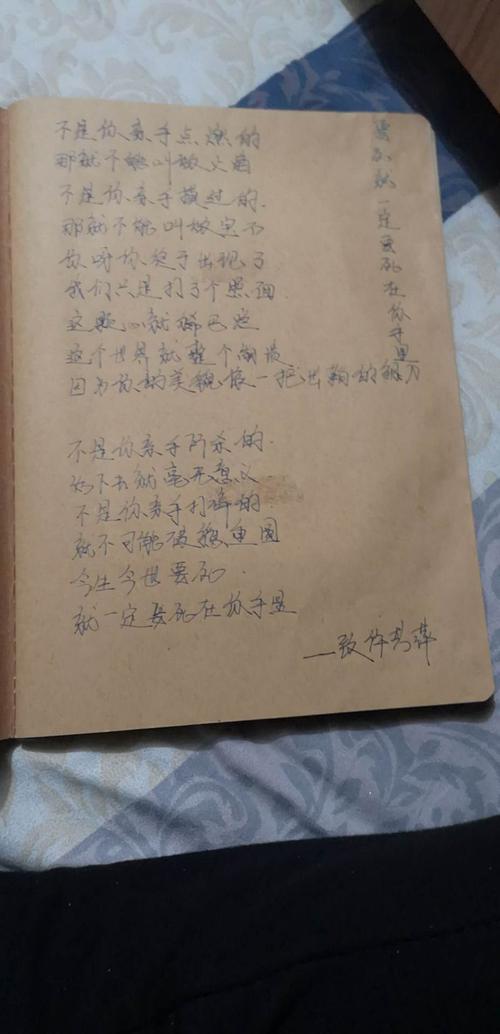 要死就一定要死在你手里
不是你亲手点燃的
那就不能叫做火焰
不是你亲手摸过的.
那就不能叫做宝石
你呀你终于出现了
我们只是打了个照面
这颗心就稀巴烂
这个世界就整个崩溃
因为你的美貌像一把出鞘的钢刀
不是你亲手所杀的.
活下去就毫无意义
不是你亲手打碎的.
就不可能破镜重圆
今生今世要死.
就一定要死在你手里
—致许